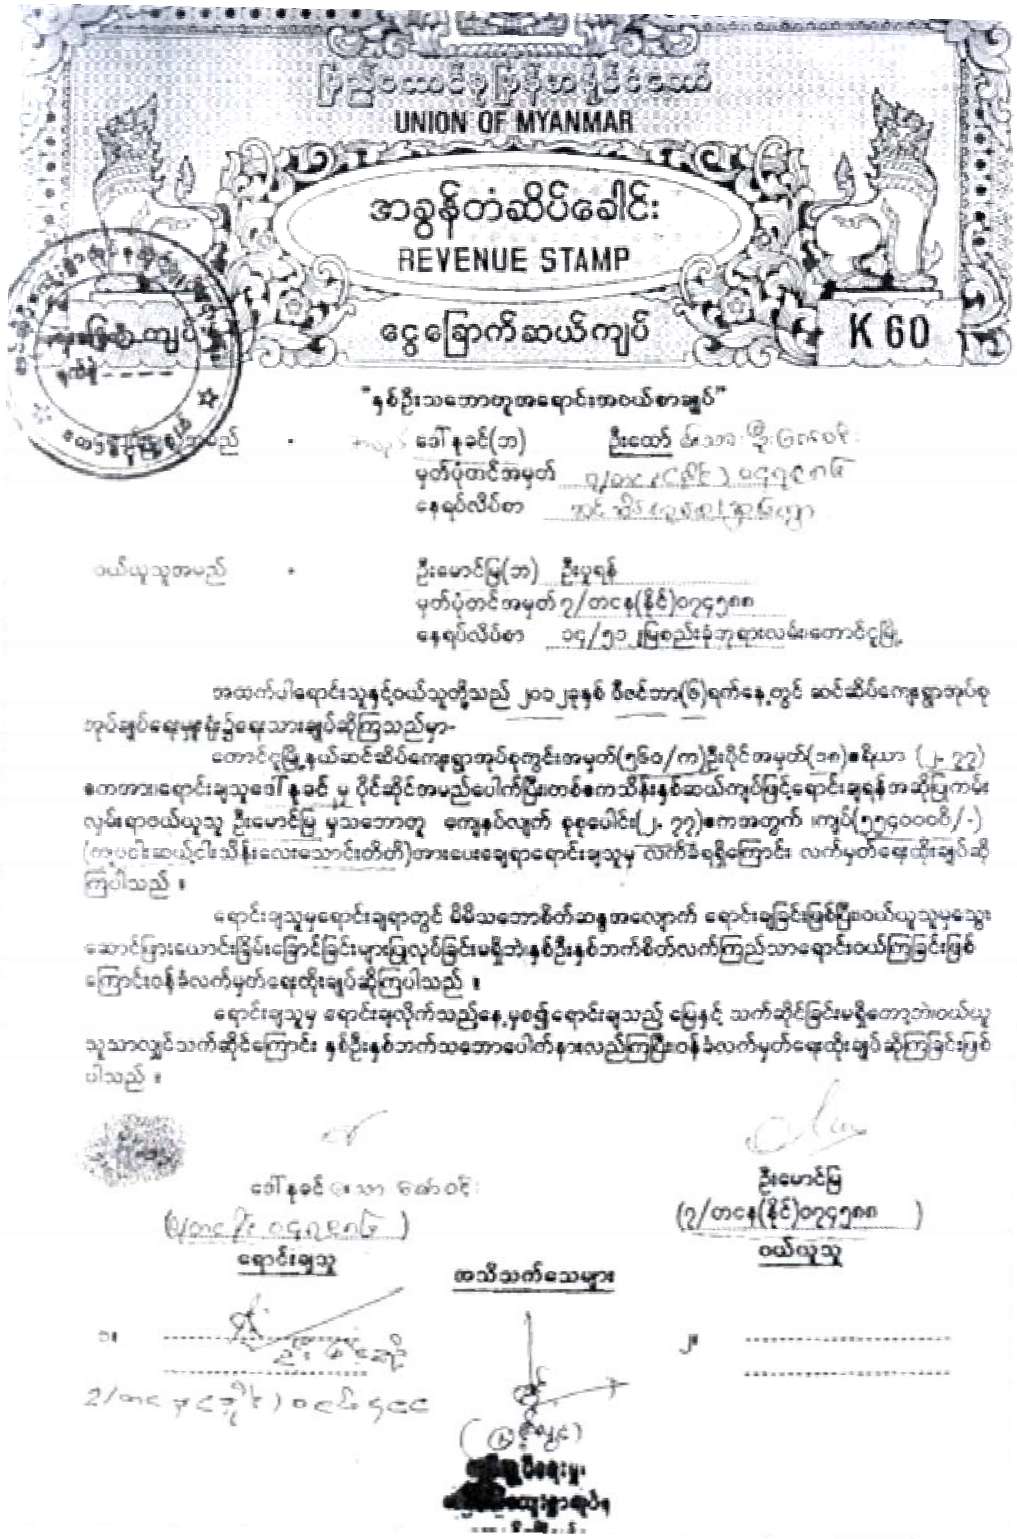 ပြည်ထောင်စုမြန်မာနိုင်ငံတော်
UNION OF MYANMAR
အခွန်တံဆိပ်ခေါင်း
REVENUE STAMP
ငွေခြောက်ဆယ်ကျပ်
K 60
"နှစ်ဦးသဘောတူအရောင်းအဝယ်စာချုပ်"
အမည် - ဒေါ်နုခင်(ဘ) ဦးထော်
မှတ်ပုံတင်အမှတ်
နေရပ်လိပ်စာ
ဝယ်ယူသူအမည် - ဦးမောင်မြ(ဘ) ဦးပူရန်
မှတ်ပုံတင်အမှတ် ၇/တငန(နိုင်)၀၇၄၅၈၈
နေရပ်လိပ်စာ ၁၄/၅၁၂မြစည်းခုံဘုရားလမ်း၊တောင်ငူမြို့
အထက်ပါရောင်းသူနှင့်ဝယ်သူတို့သည် ၂၀၁၂ခုနှစ် ဒီဇင်ဘာ(၆)ရက်နေ့တွင် ဆင်ဆိပ်ကျေးရွာအုပ်စု
အုပ်ချုပ်ရေးမှူးရုံး၌ရေးသားချုပ်ဆိုကြသည်မှာ-
တောင်ငူမြို့နယ်ဆင်ဆိပ်ကျေးရွာအုပ်စုကွင်းအမှတ်(၅၆၀/က)ဦးပိုင်အမှတ်(၁၈)ဧရိယာ (၂.၇၇)
ဧကအား၊ရောင်းချသူဒေါ်နုခင် မှ ပိုင်ဆိုင်အမည်ပေါက်ပြီး၊တစ်ဧကသိန်းနှစ်ဆယ်ကျပ်ဖြင့်ရောင်းချရန်အဆိုပြုကမ်း
လှမ်းရာဝယ်ယူသူ ဦးမောင်မြ မှသဘောတူ ကျေနပ်လျက် စုစုပေါင်း(၂.၇၇)ဧကအတွက် ၊ကျပ်(၅၅၄၀၀၀၀ိ/-)
(ကျပ်ငါးဆယ့်ငါးသိန်းလေးသောင်းတိတိ)အားပေးချေရာရောင်းချသူမှ လက်ခံရရှိကြောင်း လက်မှတ်ရေးထိုးချုပ်ဆို
ကြပါသည် ။
ရောင်းချသူမှရောင်းချရာတွင် မိမိသဘောစိတ်ဆန္ဒအလျောက် ရောင်းချခြင်းဖြစ်ပြီး၊ဝယ်ယူသူမှသွေး
ဆောင်ဖြားယောင်းခြိမ်းခြောင်ခြင်းများပြုလုပ်ခြင်းမရှိဘဲ၊နှစ်ဦးနှစ်ဘက်စိတ်လက်ကြည်သာရောင်းဝယ်ကြခြင်းဖြစ်
ကြောင်းဝန်ခံလက်မှတ်ရေးထိုးချုပ်ဆိုကြပါသည် ။
ရောင်းချသူမှ ရောင်းချလိုက်သည့်နေ့မှစ၍ရောင်းချသည့် မြေနှင့် သက်ဆိုင်ခြင်းမရှိတော့ဘဲ၊ဝယ်ယူ
သူသာလျှင်သက်ဆိုင်ကြောင်း နှစ်ဦးနှစ်ဘက်သဘောပေါက်နားလည်ကြပြီး၊ဝန်ခံလက်မှတ်ရေးထိုးချုပ်ဆိုကြခြင်းဖြစ်
ပါသည် ။
ဒေါ်နုခင်
ရောင်းချသူ
ဦးမောင်မြ
(၇/တငန(နိုင်)၀၇၄၅၈၈ )
ဝယ်ယူသူ
အသိသက်သေများ
၁။
၂။